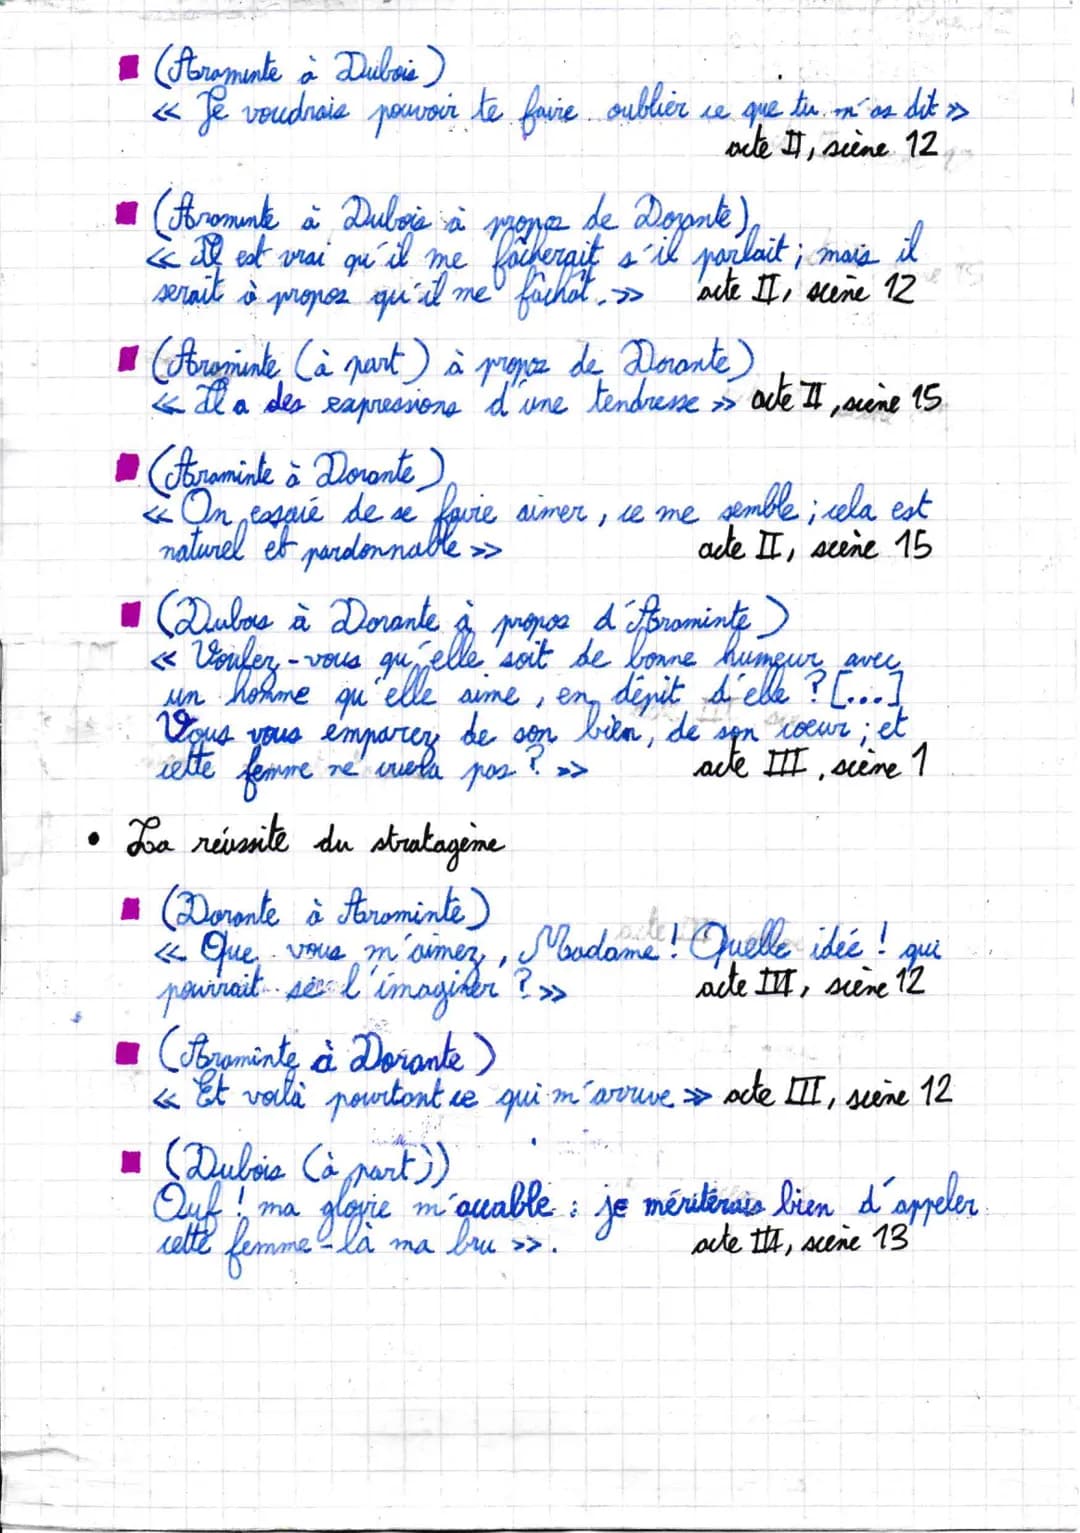 (Araminte à Dubois)
« Je voudrais pouvoir te faire oublier ce que tu m'as dit »
acte II, scène 12
(Araminte à Dubois à propos de Dorante)
« Il est vrai qu'il me fâcherait s'il parlait ; mais il
serait à propos qu'il me fâchât. » acte II, scène 12
(Araminte (à part) à propos de Dorante)
« Il a des expressions d'une tendresse » acte II, scène 15
(Araminte à Dorante)
« On essaie de se faire aimer, ce me semble ; cela est
naturel et pardonnable » acte II, scène 15
(Dubois à Dorante à propos d'Araminte)
« Voulez-vous qu'elle soit de bonne humeur avec
un homme qu'elle aime, en dépit d'elle ? [...]
Vous vous emparez de son bien, de son coeur ; et
cette femme ne criera pas ? » acte III, scène 1
• La réussite du stratagème
(Dorante à Araminte)
« Que vous m'aimez, Madame ! Quelle idée ! qui
pourrait se l'imaginer ? » acte III, scène 12
(Araminte à Dorante)
« Et voilà pourtant ce qui m'arrive » acte III, scène 12
(Dubois (à part))
Ouf ! ma gloire m'accable : je mériterais bien d'appeler
cette femme-là ma bru ». acte III, scène 13